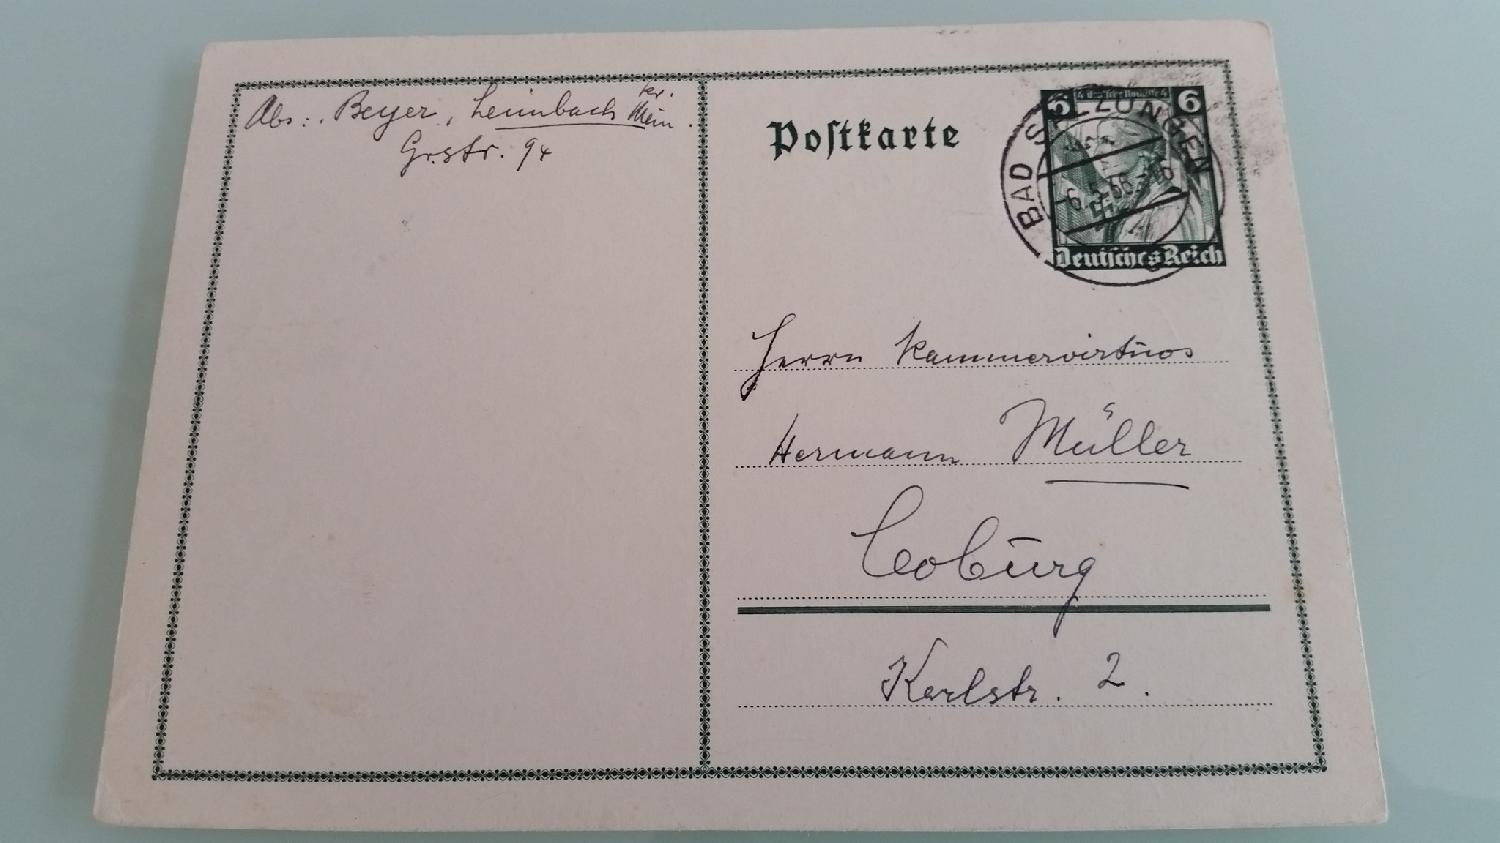 Abs: Beyer, Leimbach Kr.
Mein.
Gr.str. 94
Postkarte
6 6
BAD SALZUNGEN
Deutsches Reich
Herrn Kammervirtuos
Hermann Müller
Coburg
Karlstr. 2.